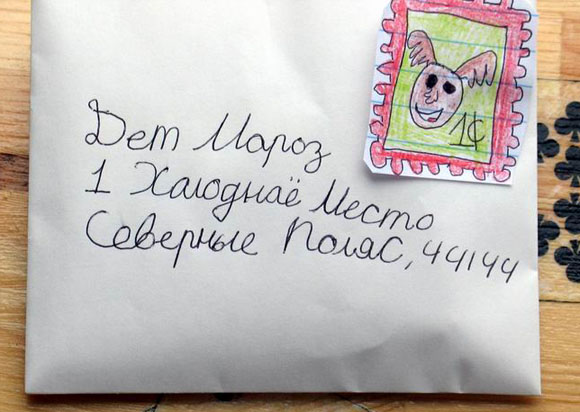 Дет Мароз
1 Халоднаё Место
Северные Поляс, 44144
1¢